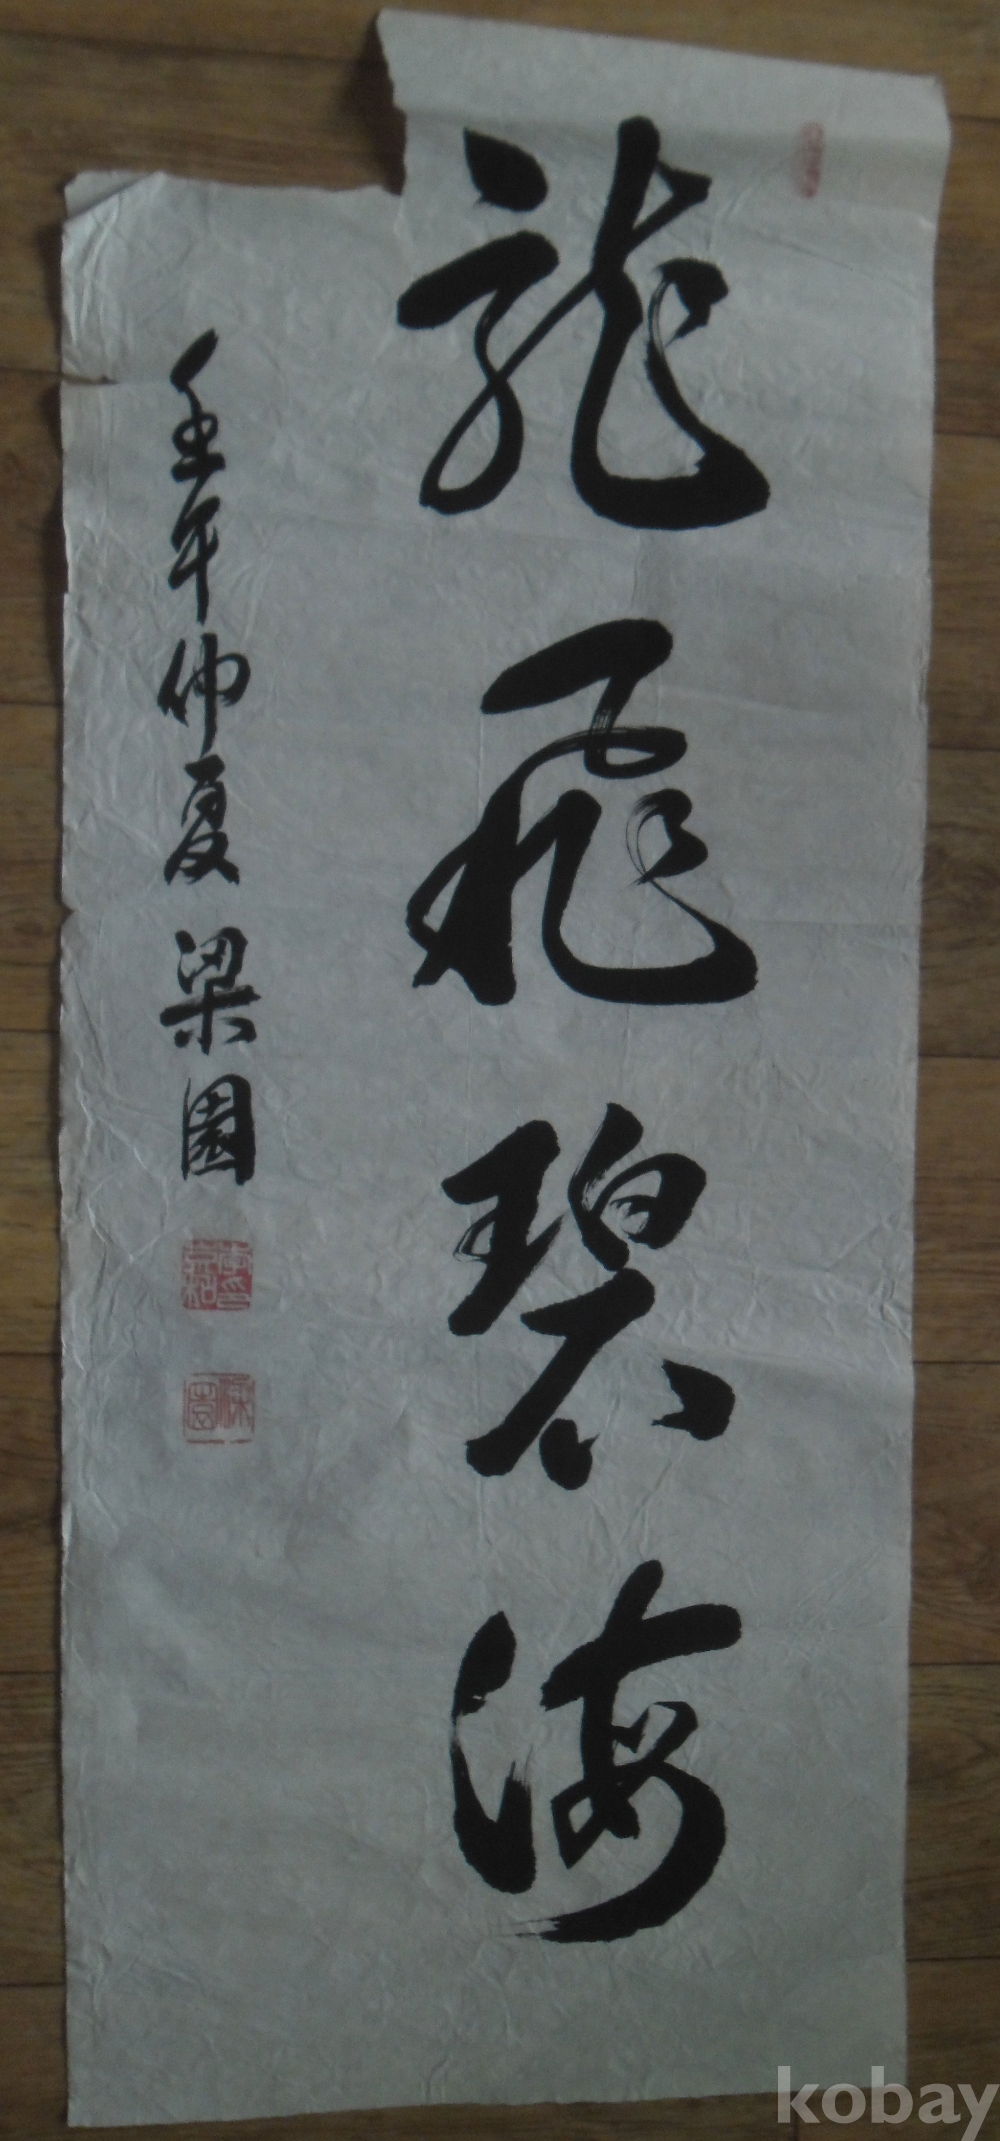 龍飛碧海
壬午仲夏 梁園
梁園
kobay